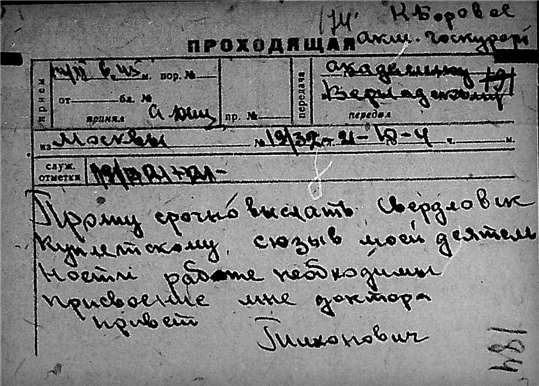 174
К Боровое
ПРОХОДЯЩАЯ Акм. Госкурорт
прием пор. №
от бл. №
принял
пр. №
передача академику
Вернадскому
передал
из Москвы № 19/32-21-18-4 г. м.
служ. отметки
Прошу срочно выслать Свердловск
Куплетскому моей деятель
ности работе необходимы
присвоение мне доктора
привет
Тихонович
184